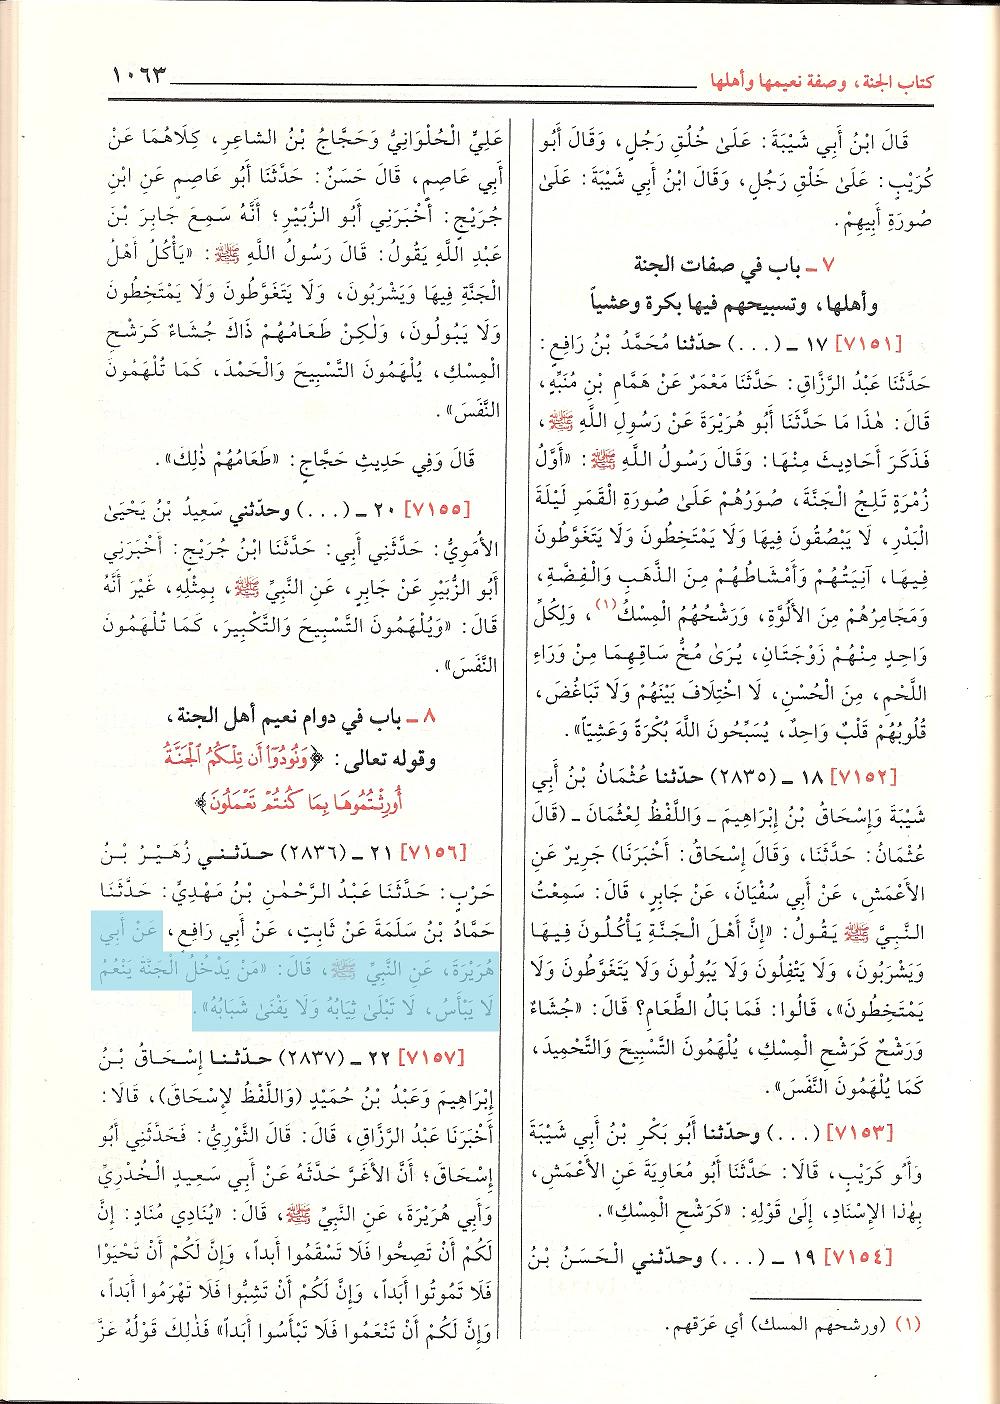 كتاب الجنة، وصفة نعيمها وأهلها
١٠٦٣
قَالَ ابْنُ أَبِي شَيْبَةَ: عَلَىٰ خُلُقِ رَجُلٍ، وَقَالَ أَبُو
كُرَيْبٍ: عَلَىٰ خَلْقِ رَجُلٍ، وَقَالَ ابْنُ أَبِي شَيْبَةَ: عَلَىٰ
صُورَةِ أَبِيهِمْ.
٧ ـ باب في صفات الجنة
وأهلها، وتسبيحهم فيها بكرة وعشياً
[٧١٥١] ١٧ ـ (...) حدّثنا مُحَمَّدُ بْنُ رَافِعٍ:
حَدَّثَنَا عَبْدُ الرَّزَّاقِ: حَدَّثَنَا مَعْمَرٌ عَنْ هَمَّامِ بْنِ مُنَبِّهٍ،
قَالَ: هٰذَا مَا حَدَّثَنَا أَبُو هُرَيْرَةَ عَنْ رَسُولِ اللَّهِ ﷺ،
فَذَكَرَ أَحَادِيثَ مِنْهَا: وَقَالَ رَسُولُ اللَّهِ ﷺ: «أَوَّلُ
زُمْرَةٍ تَلِجُ الْجَنَّةَ، صُوَرُهُمْ عَلَىٰ صُورَةِ الْقَمَرِ لَيْلَةَ
الْبَدْرِ، لَا يَبْصُقُونَ فِيهَا وَلَا يَمْتَخِطُونَ وَلَا يَتَغَوَّطُونَ
فِيهَا، آنِيَتُهُمْ وَأَمْشَاطُهُمْ مِنَ الذَّهَبِ وَالْفِضَّةِ،
وَمَجَامِرُهُمْ مِنَ الأَلُوَّةِ، وَرَشْحُهُمُ الْمِسْكُ(١)، وَلِكُلِّ
وَاحِدٍ مِنْهُمْ زَوْجَتَانِ، يُرَىٰ مُخُّ سَاقِهِمَا مِنْ وَرَاءِ
اللَّحْمِ، مِنَ الْحُسْنِ، لَا اخْتِلَافَ بَيْنَهُمْ وَلَا تَبَاغُضَ،
قُلُوبُهُمْ قَلْبٌ وَاحِدٌ، يُسَبِّحُونَ اللَّهَ بُكْرَةً وَعَشِيّاً».
[٧١٥٢] ١٨ ـ (٢٨٣٥) حدّثنا عُثْمَانُ بْنُ أَبِي
شَيْبَةَ وَإِسْحَاقُ بْنُ إِبْرَاهِيمَ ـ وَاللَّفْظُ لِعُثْمَانَ ـ (قَالَ
عُثْمَانُ: حَدَّثَنَا، وَقَالَ إِسْحَاقُ: أَخْبَرَنَا) جَرِيرٌ عَنِ
الأَعْمَشِ، عَنْ أَبِي سُفْيَانَ، عَنْ جَابِرٍ، قَالَ: سَمِعْتُ
النَّبِيَّ ﷺ يَقُولُ: «إِنَّ أَهْلَ الْجَنَّةِ يَأْكُلُونَ فِيهَا
وَيَشْرَبُونَ، وَلَا يَتْفِلُونَ وَلَا يَبُولُونَ وَلَا يَتَغَوَّطُونَ وَلَا
يَمْتَخِطُونَ»، قَالُوا: فَمَا بَالُ الطَّعَامِ؟ قَالَ: «جُشَاءٌ
وَرَشْحٌ كَرَشْحِ الْمِسْكِ، يُلْهَمُونَ التَّسْبِيحَ وَالتَّحْمِيدَ،
كَمَا يُلْهَمُونَ النَّفَسَ».
[٧١٥٣] (...) وحدّثنا أَبُو بَكْرِ بْنُ أَبِي شَيْبَةَ
وَأَبُو كُرَيْبٍ، قَالَا: حَدَّثَنَا أَبُو مُعَاوِيَةَ عَنِ الأَعْمَشِ،
بِهٰذَا الإِسْنَادِ، إِلَىٰ قَوْلِهِ: «كَرَشْحِ الْمِسْكِ».
[٧١٥٤] ١٩ ـ (...) وحدّثني الْحَسَنُ بْنُ
(١) (ورشحهم المسك) أي عَرَقهم.
عَلِيٍّ الْحُلْوَانِيُّ وَحَجَّاجُ بْنُ الشاعِرِ، كِلَاهُمَا عَنْ
أَبِي عَاصِمٍ، قَالَ حَسَنٌ: حَدَّثَنَا أَبُو عَاصِمٍ عَنِ ابْنِ
جُرَيْجٍ: أَخْبَرَنِي أَبُو الزُّبَيْرِ؛ أَنَّهُ سَمِعَ جَابِرَ بْنَ
عَبْدِ اللَّهِ يَقُولُ: قَالَ رَسُولُ اللَّهِ ﷺ: «يَأْكُلُ أَهْلُ
الْجَنَّةِ فِيهَا وَيَشْرَبُونَ، وَلَا يَتَغَوَّطُونَ وَلَا يَمْتَخِطُونَ
وَلَا يَبُولُونَ، وَلٰكِنْ طَعَامُهُمْ ذَاكَ جُشَاءٌ كَرَشْحِ
الْمِسْكِ، يُلْهَمُونَ التَّسْبِيحَ وَالْحَمْدَ، كَمَا تُلْهَمُونَ
النَّفَسَ».
قَالَ وَفِي حَدِيثِ حَجَّاجٍ: «طَعَامُهُمْ ذٰلِكَ».
[٧١٥٥] ٢٠ ـ (...) وحدّثني سَعِيدُ بْنُ يَحْيَىٰ
الأُمَوِيُّ: حَدَّثَنِي أَبِي: حَدَّثَنَا ابْنُ جُرَيْجٍ: أَخْبَرَنِي
أَبُو الزُّبَيْرِ عَنْ جَابِرٍ، عَنِ النَّبِيِّ ﷺ، بِمِثْلِهِ، غَيْرَ أَنَّهُ
قَالَ: «وَيُلْهَمُونَ التَّسْبِيحَ وَالتَّكْبِيرَ، كَمَا تُلْهَمُونَ
النَّفَسَ».
٨ ـ باب في دوام نعيم أهل الجنة،
وقوله تعالى: ﴿وَنُودُوٓا۟ أَن تِلْكُمُ ٱلْجَنَّةُ
أُورِثْتُمُوهَا بِمَا كُنتُمْ تَعْمَلُونَ﴾
[٧١٥٦] ٢١ ـ (٢٨٣٦) حدّثني زُهَيْرُ بْنُ
حَرْبٍ: حَدَّثَنَا عَبْدُ الرَّحْمٰنِ بْنُ مَهْدِيٍّ: حَدَّثَنَا
حَمَّادُ بْنُ سَلَمَةَ عَنْ ثَابِتٍ، عَنْ أَبِي رَافِعٍ، عَنْ أَبِي
هُرَيْرَةَ، عَنِ النَّبِيِّ ﷺ، قَالَ: «مَنْ يَدْخُلُ الْجَنَّةَ يَنْعَمُ
لَا يَبْأَسُ، لَا تَبْلَىٰ ثِيَابُهُ وَلَا يَفْنَىٰ شَبَابُهُ».
[٧١٥٧] ٢٢ ـ (٢٨٣٧) حدّثنا إِسْحَاقُ بْنُ
إِبْرَاهِيمَ وَعَبْدُ بْنُ حُمَيْدٍ (وَاللَّفْظُ لِإِسْحَاقَ)، قَالَا:
أَخْبَرَنَا عَبْدُ الرَّزَّاقِ، قَالَ: قَالَ الثَّوْرِيُّ: فَحَدَّثَنِي أَبُو
إِسْحَاقَ؛ أَنَّ الأَغَرَّ حَدَّثَهُ عَنْ أَبِي سَعِيدٍ الْخُدْرِيِّ
وَأَبِي هُرَيْرَةَ، عَنِ النَّبِيِّ ﷺ، قَالَ: «يُنَادِي مُنَادٍ: إِنَّ
لَكُمْ أَنْ تَصِحُّوا فَلَا تَسْقَمُوا أَبداً، وَإِنَّ لَكُمْ أَنْ تَحْيَوْا
فَلَا تَمُوتُوا أَبَداً، وَإِنَّ لَكُمْ أَنْ تَشِبُّوا فَلَا تَهْرَمُوا أَبَداً،
وَإِنَّ لَكُمْ أَنْ تَنْعَمُوا فَلَا تَبْأَسُوا أَبَداً» فَذٰلِكَ قَوْلُهُ عَزَّ